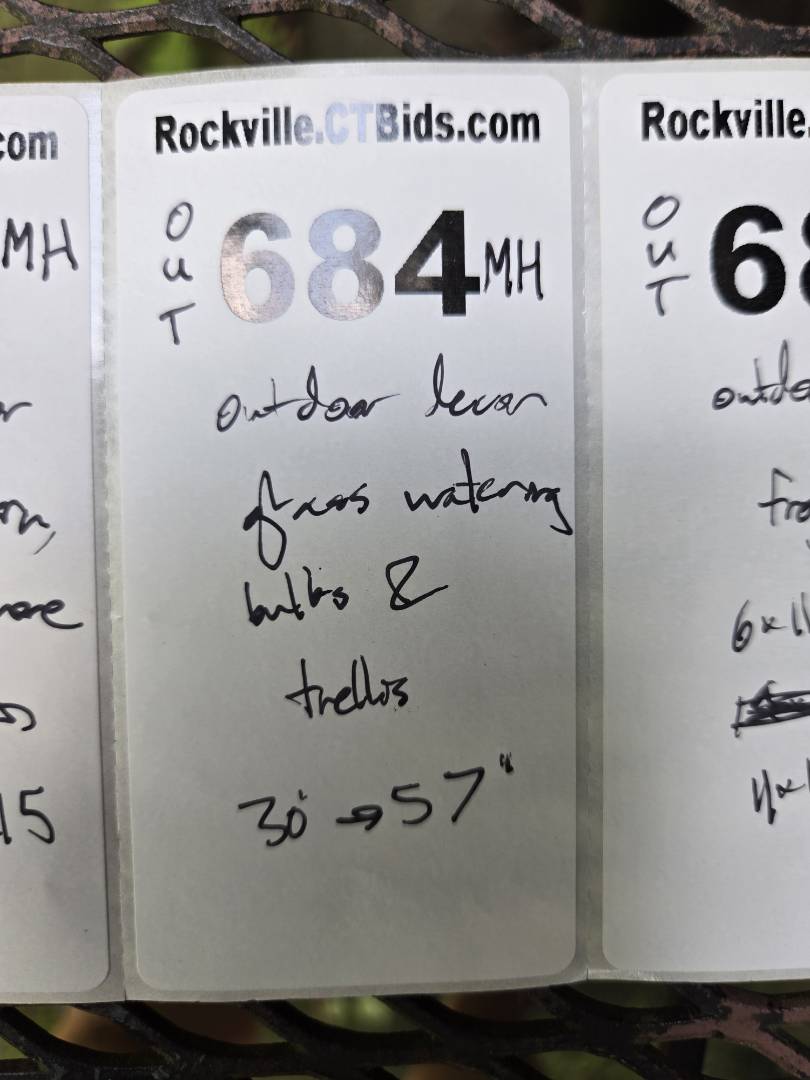 com
MH
15
Rockville.CTBids.com
OUT
684 MH
outdoor decor
glass watering
bulbs &
trellis
30" → 57"
Rockville.
OUT
68
outdo
6x11